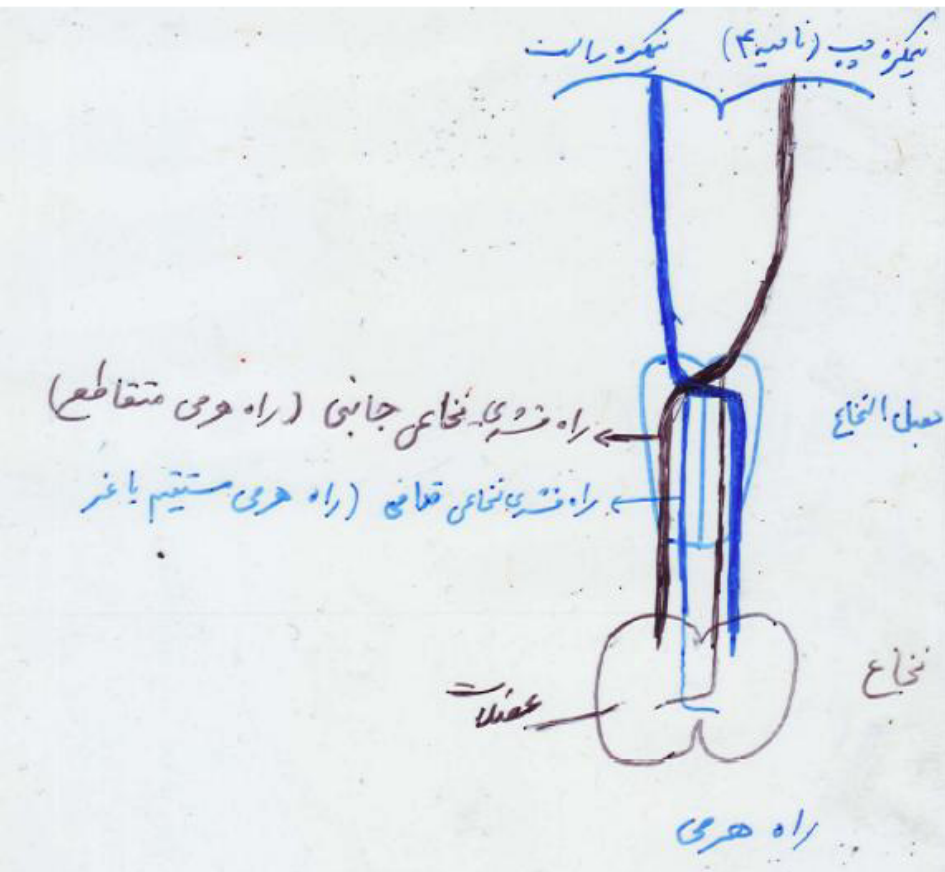 نیمکره چپ (ناحیه ۴)
نیمکره راست
راه قشری نخاعی جانبی (راه هرمی متقاطع)
بصل النخاع
راه قشری نخاعی قدامی (راه هرمی مستقیم یا غیر
نخاع
عضلات
راه هرمی